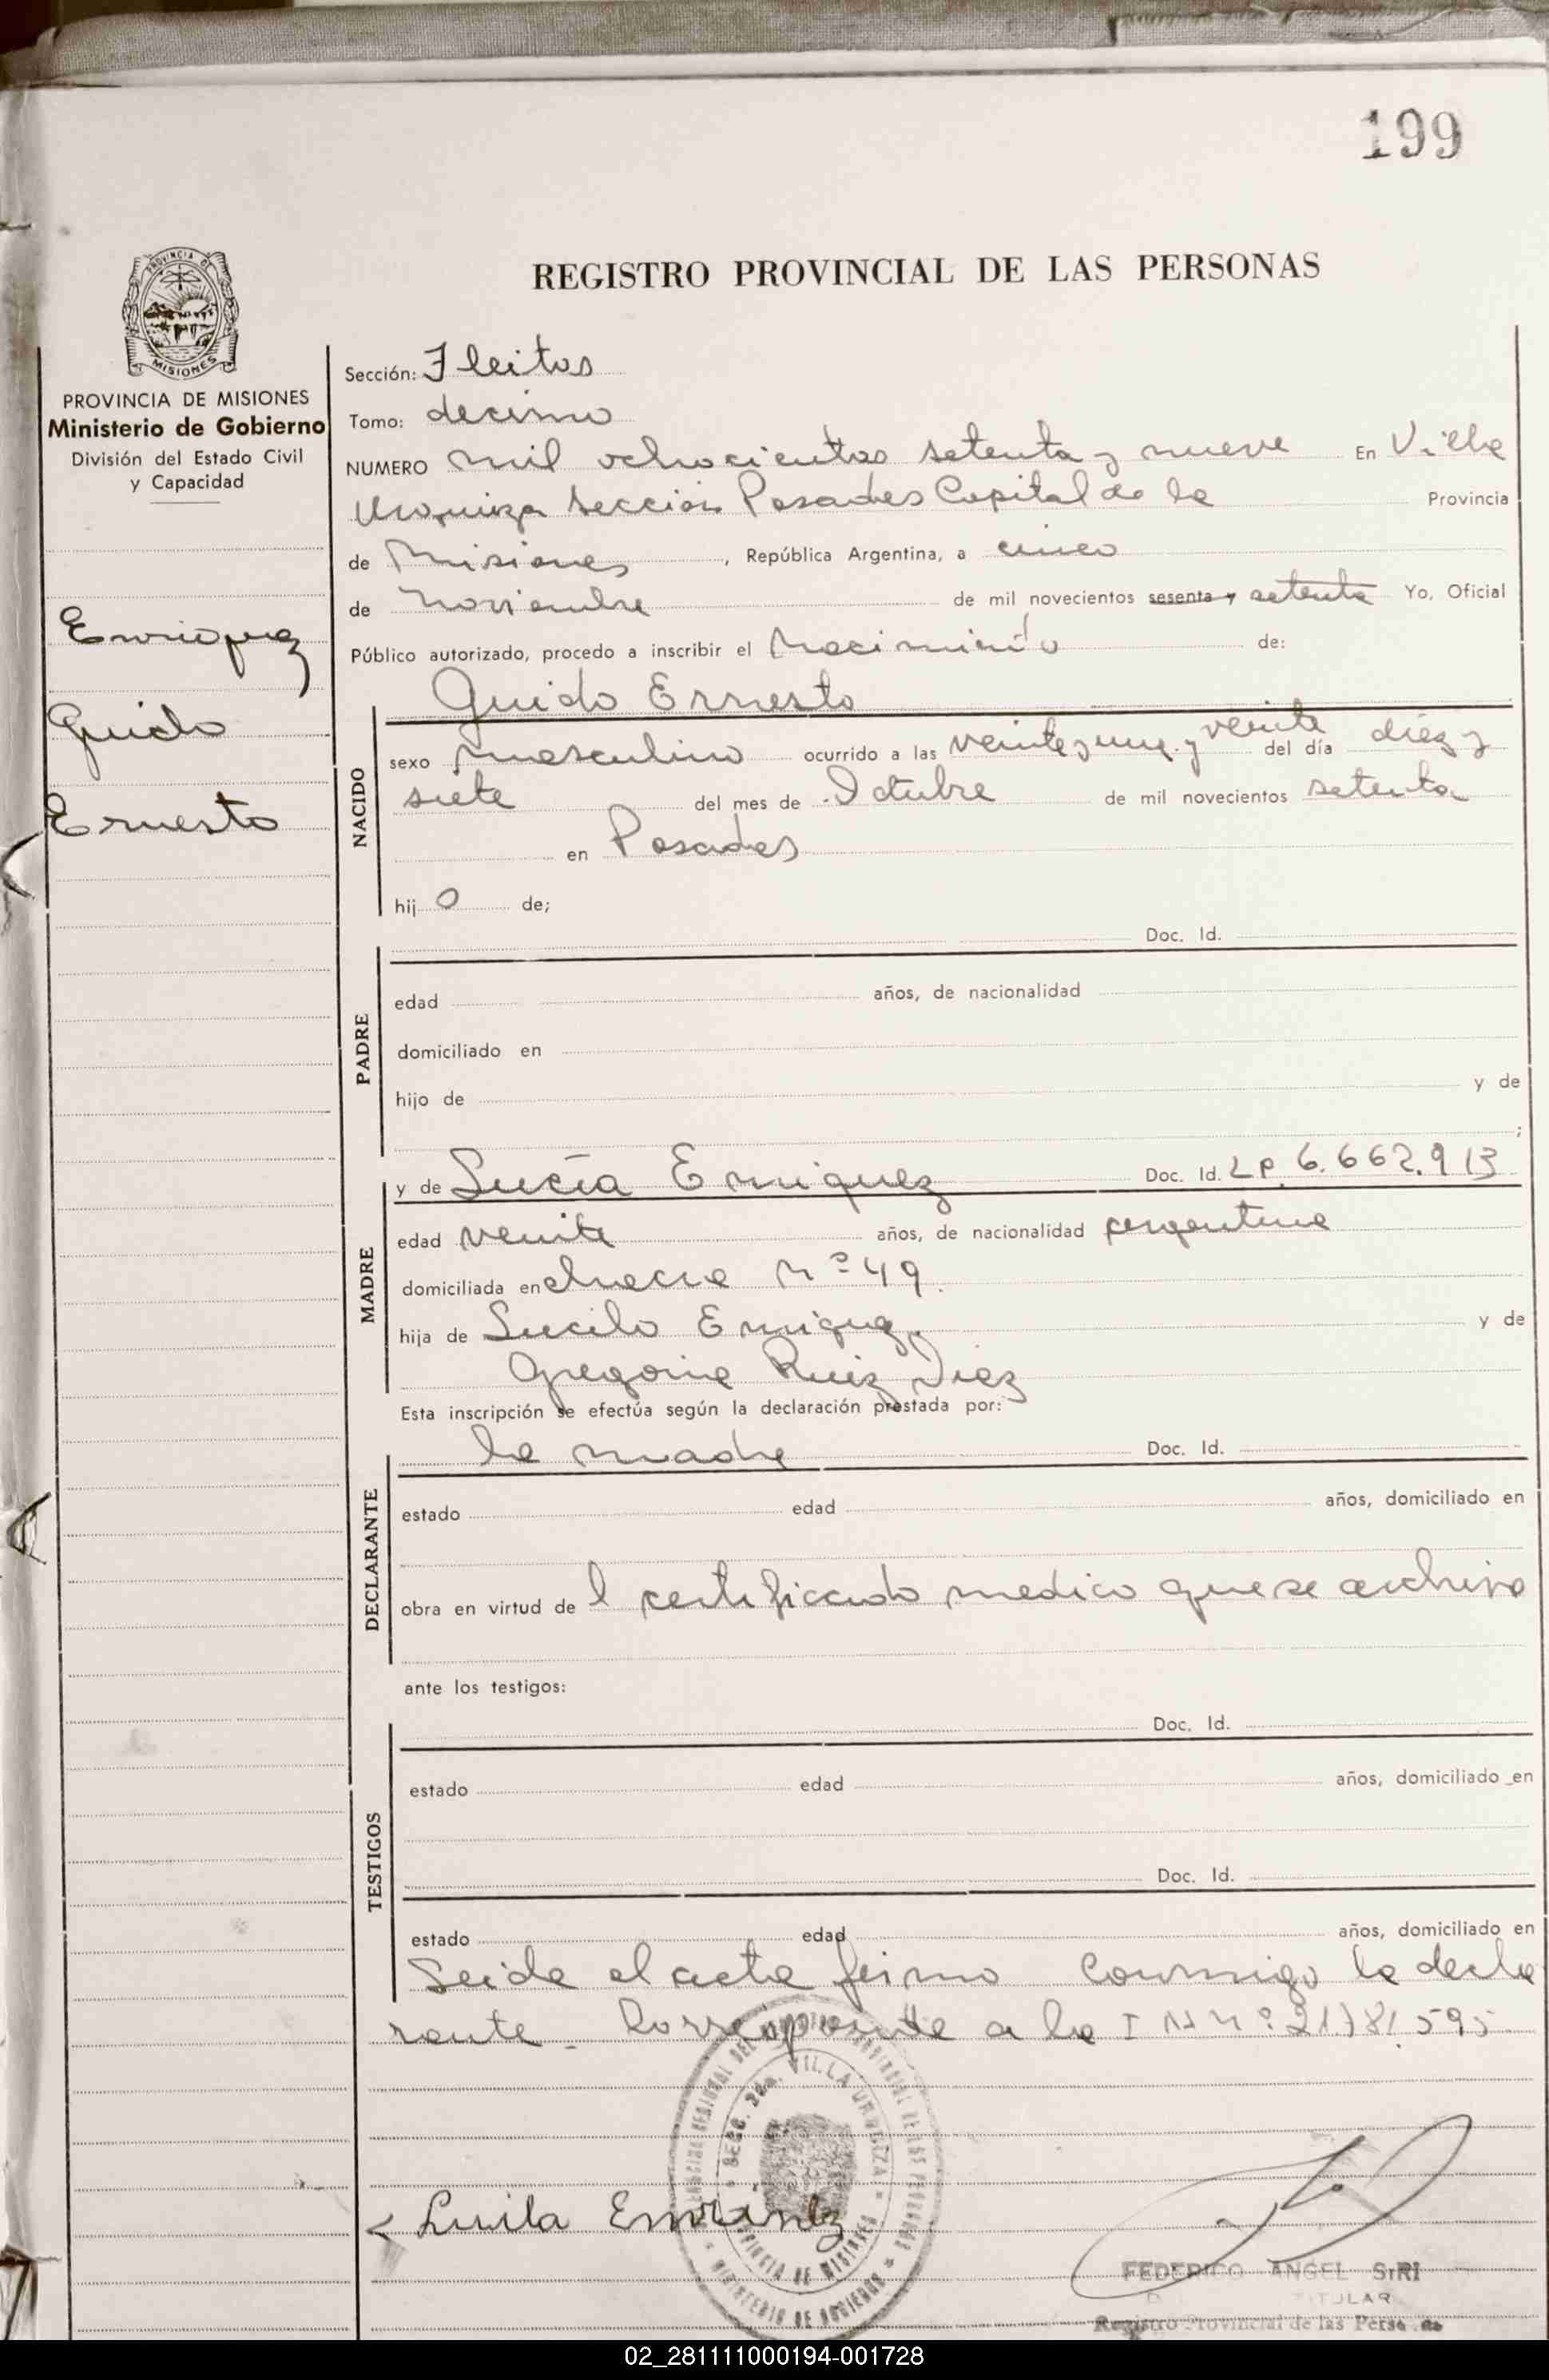 199
REGISTRO PROVINCIAL DE LAS PERSONAS
PROVINCIA DE MISIONES
Ministerio de Gobierno
División del Estado Civil
y Capacidad
Enriquez
Guido
Ernesto
Sección: Fleitas
Tomo: decimo
NUMERO mil ochocientos setenta y nueve En Villa
Urquiza Sección Posadas Capital de la Provincia
de Misiones, República Argentina, a cinco
de noviembre de mil novecientos sesenta y setenta Yo, Oficial
Público autorizado, procedo a inscribir el Nacimiento de:
Guido Ernesto
NACIDO
sexo masculino ocurrido a las veinte y una y veinte del día diez y
siete del mes de Octubre de mil novecientos setenta
en Posadas
hijo de;
Doc. Id.
PADRE
edad años, de nacionalidad
domiciliado en
hijo de y de
;
MADRE
y de Lucía Enriquez Doc. Id. LC 6.662.913
edad veinte años, de nacionalidad argentina
domiciliada en chacra Nº 49.
hija de Lucilo Enriquez y de
Gregoria Ruiz Diez
Esta inscripción se efectúa según la declaración prestada por:
DECLARANTE
la madre Doc. Id.
estado edad años, domiciliado en
obra en virtud del certificado medico que se archiva
ante los testigos:
TESTIGOS
Doc. Id.
estado edad años, domiciliado en
Doc. Id.
estado edad años, domiciliado en
Leida el acta firma conmigo la decla
rante_ Corresponde a la I Nº 21781595
SECC. 2da. VILLA URQUIZA
PROVINCIA DE MISIONES
MINISTERIO DE GOBIERNO
Enriquez
FEDERICO ANGEL
TITULAR
Registro Provincial de las Personas
02_281111000194-001728